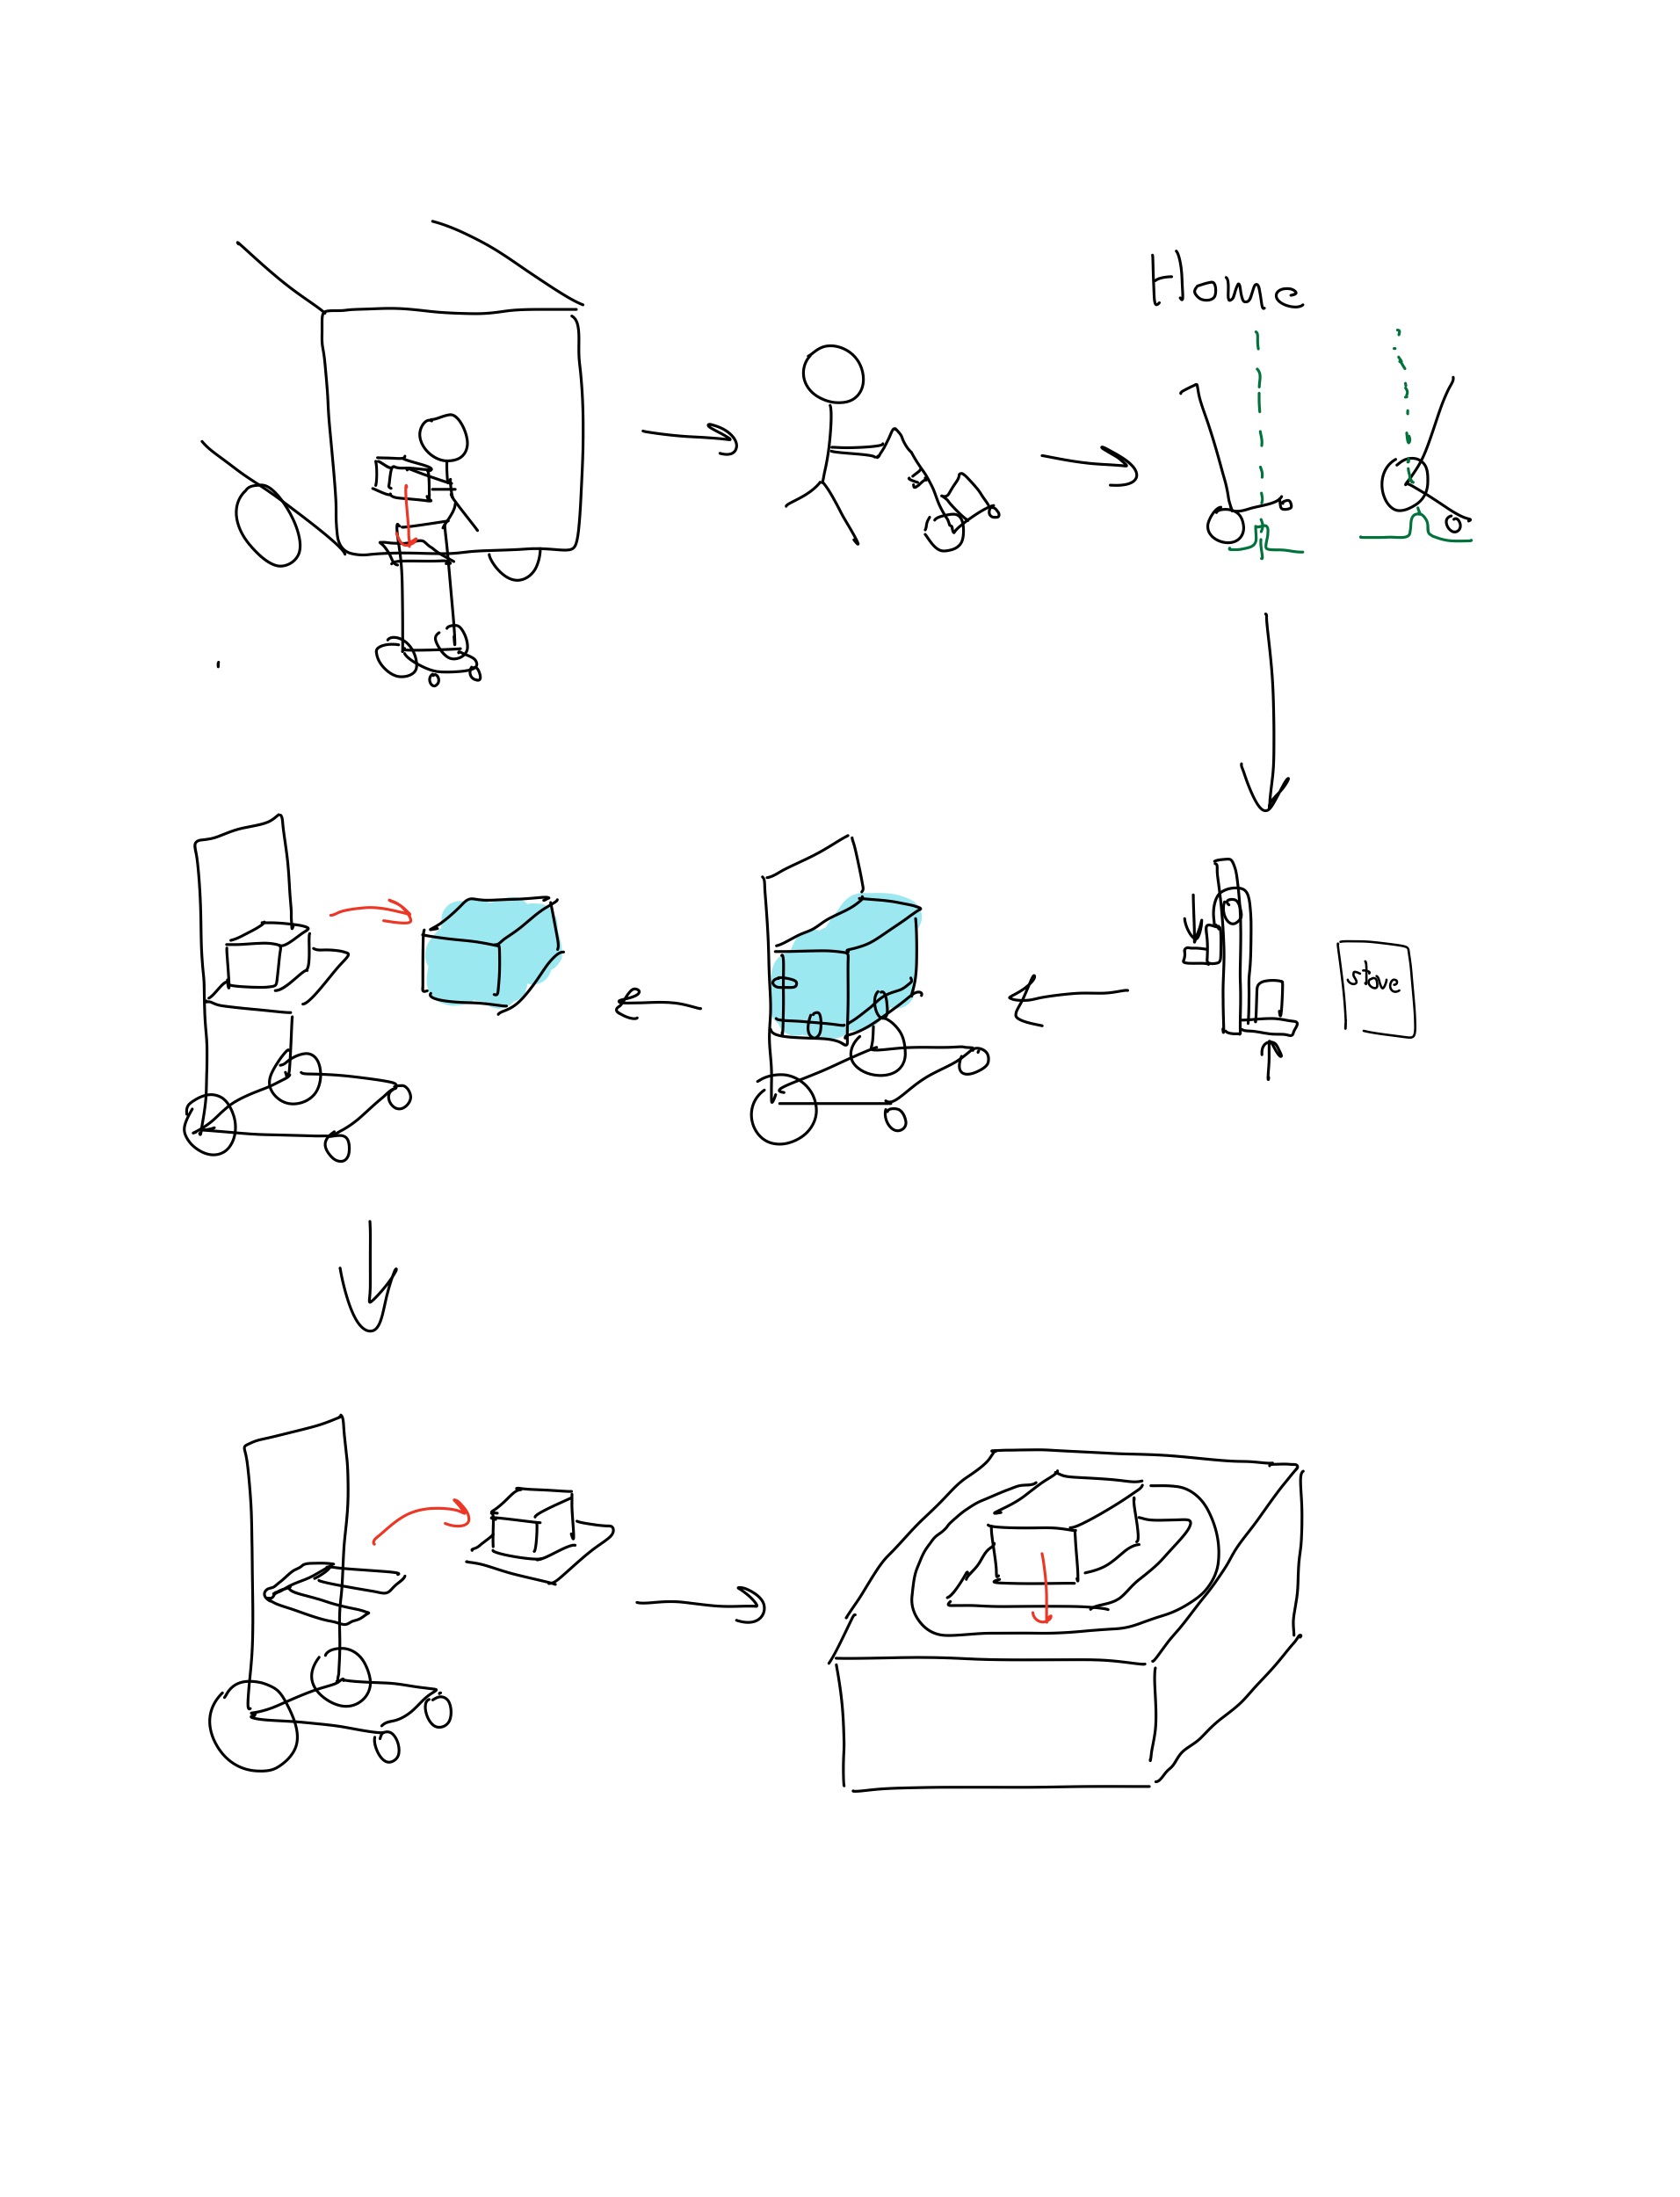 Home
stove